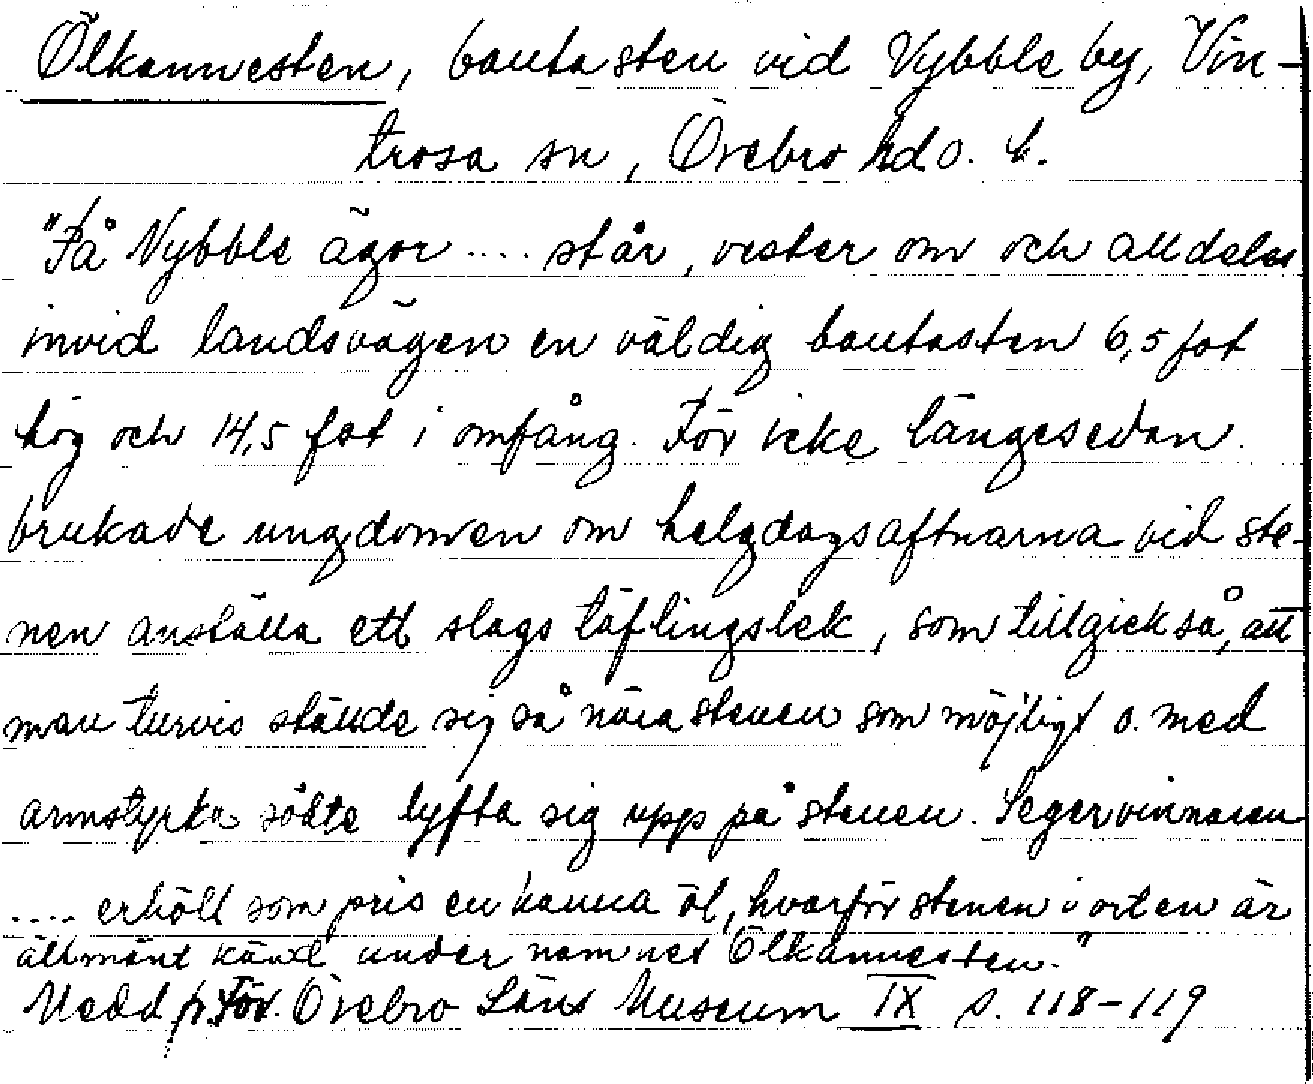 Ölkannesten, bautasten vid Vybble by, Vin-
trosa sn, Örebro hd o. l.
"På Vybble ägor .... står, vester om och alldeles
invid landsvägen en väldig bautasten 6,5 fot
hög och 14,5 fot i omfång. För icke längesedan
brukade ungdomen om helgdagsaftnarna vid ste-
nen anställa ett slags täflingslek, som tillgick så, att
man turvis stälde sig så nära stenen som möjligt o. med
armstyrka sökte lyfta sig upp på stenen. Segervinnaren
.... erhöll som pris en kanna öl, hvarför stenen i orten är
allmänt känd under namnet Ölkannesten."
Medd fr. För. Örebro Läns Museum IX s. 118-119